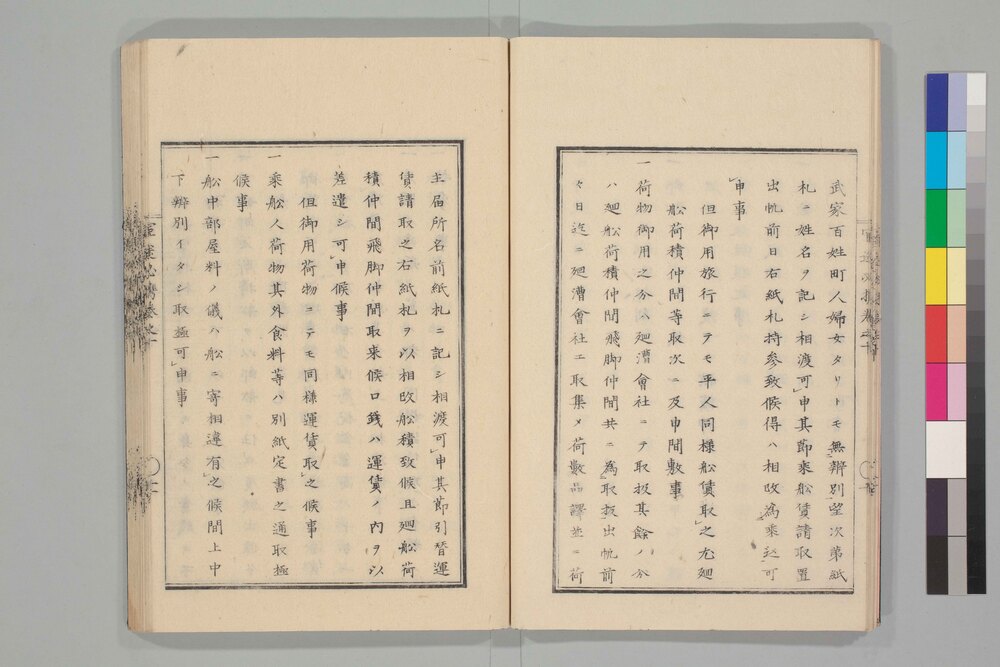 武家百姓町人婦女タリトモ無辨別望次第紙
札ニ姓名ヲ記シ相渡可申其節乘船賃請取置
出帆前日右紙札持参致候得ハ相改為乘込可
申事
但御用旅行ニテモ平人同様船賃取之尤廻
船荷積仲間等取次ニ及申間敷事
一荷物御用之分ハ廻漕會社ニテ取扱其餘ノ分
ハ廻船荷積仲間飛脚仲間共ニ為取扱出帆前
々日迄ニ廻漕會社エ取集メ荷數品譯並ニ荷
主届所名前紙札ニ記シ相渡可申其節引替運
賃請取之右紙札ヲ以相改船積致候且廻船荷
積仲間飛脚仲間取来候口錢ハ運賃ノ内ヲ以
差遣シ可申候事
但御用荷物ニテモ同様運賃取之候事
一乘船人荷物其外食料等ハ別紙定書之通取極
候事
一船中部屋料ノ儀ハ船ニ寄相違有之候間上中
下辨別イタシ取極可申事